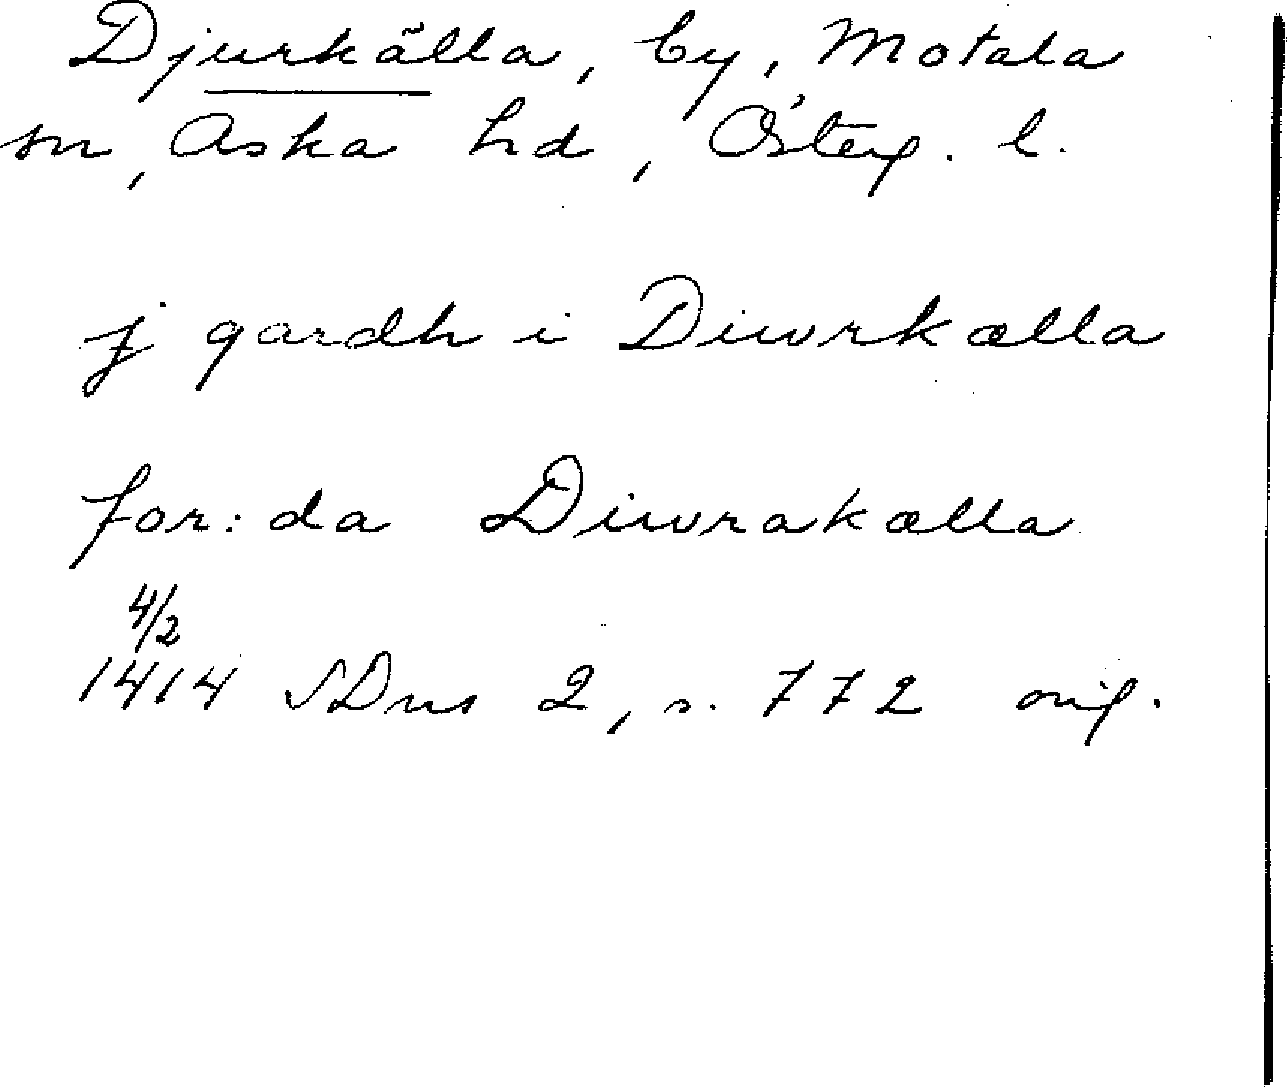 Djurkälla, by, Motala
sn, Aska hd, Österg. l.
j gardh i Diwrkælla
for: da Diwrakælla
4/2
1414 SDns 2, s. 772 orig.